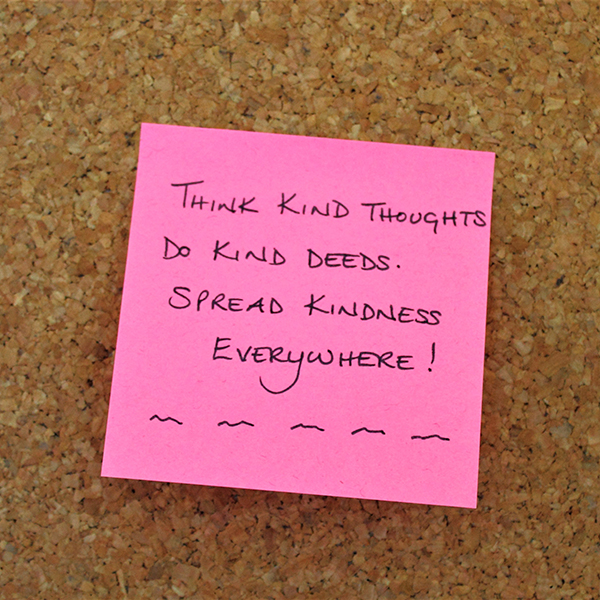 THINK KIND THOUGHTS
DO KIND DEEDS.
SPREAD KINDNESS
EVERYWHERE!
~ ~ ~ ~ ~